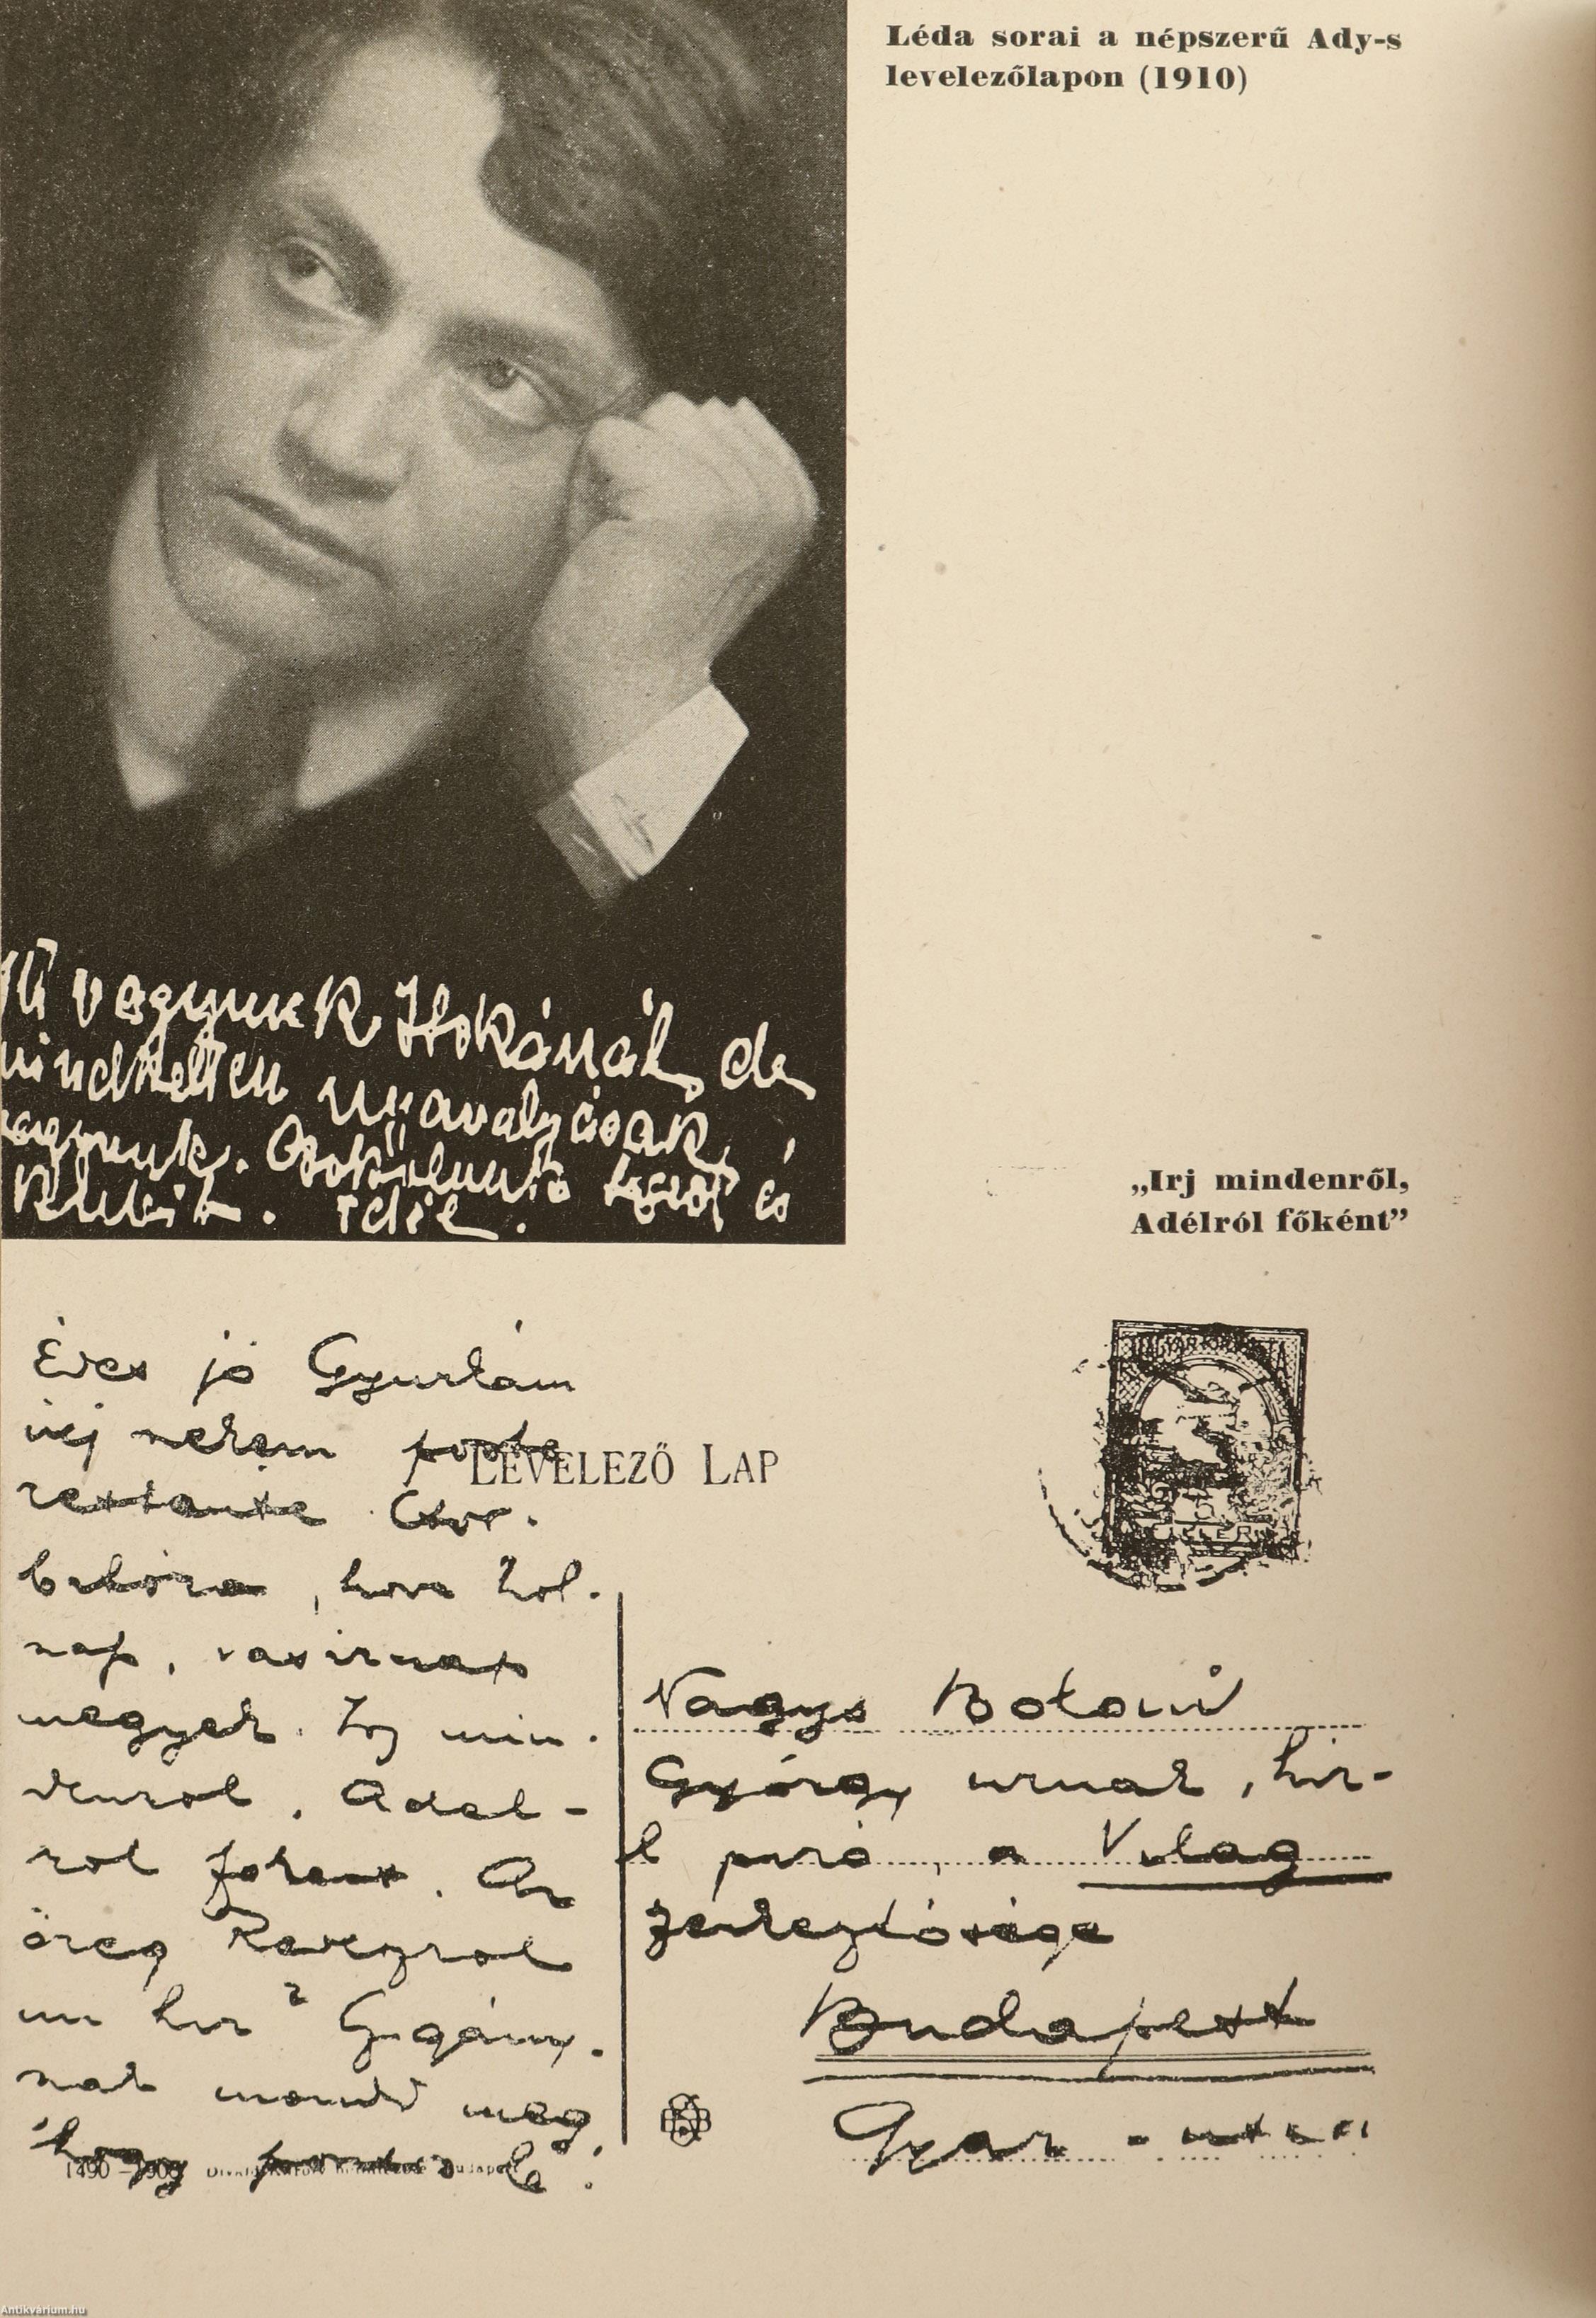 Léda sorai a népszerű Ady-s
levelezőlapon (1910)
Mi vagyunk Ilkánál, de
mindketten nyavalyásak
vagyunk. Csókolunk és
„Irj mindenről,
Adélról főként”
Édes jó Gyurkám
irj nekem poste
restante Csor-
batóra, hova hol-
nap, vasárnap
megyek. Irj min-
denről, Adél-
ról főként. Az
öreg
mi hir? Cigány-
nak mondd meg,
hogy
LEVELEZŐ LAP
MAGYAR KIR. POSTA
Nagys Bölöni
György urnak, hir-
l piró, a Világ
szerkesztősége
Budapest
Gyár-utca
1490–1908 Divald Károly Budapest
Antikvárium.hu